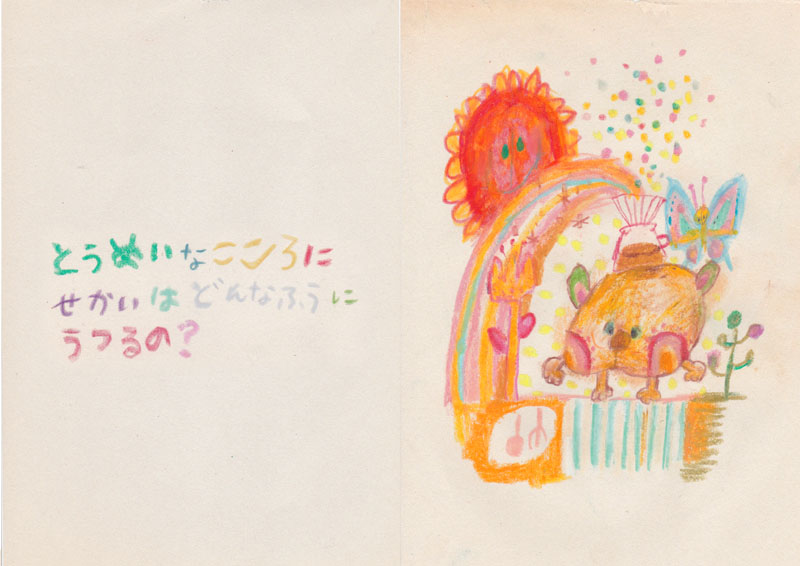 とうめいなこころに
せかいはどんなふうに
うつるの?